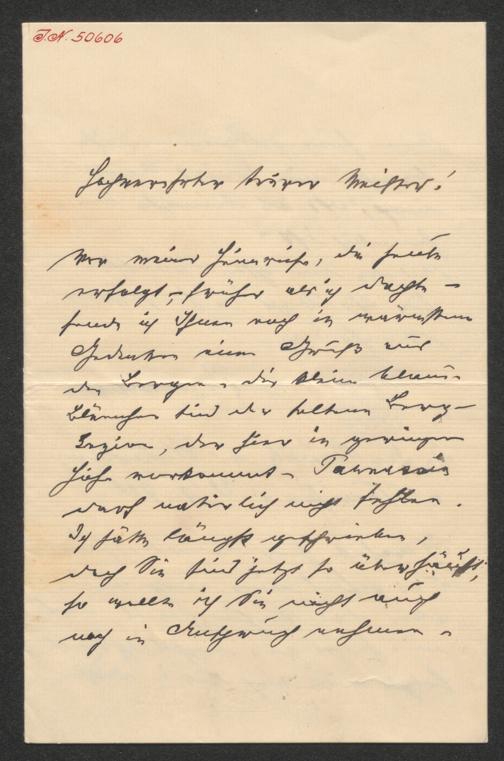 J.N. 50606
Hochverehrter teurer Meister!
Vor meiner Heimreise, die heute
erfolgt, – früher als ich dachte –
sende ich Ihnen noch in wärmstem
Gedenken einen Gruß aus
den Bergen – die kleinen blauen
Blümchen sind der seltene Berg-
Enzian, der hier in geringer
Höhe vorkommt – Parnassia
darf natürlich nicht fehlen.
Ich hätte längst geschrieben,
doch Sie sind jetzt so überhäuft,
so wollte ich Sie nicht auch
noch in Anspruch nehmen –